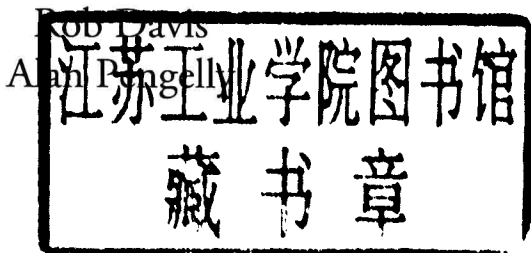 Rob Davis
Alan Pengelly
江苏工业学院图书馆
藏书章